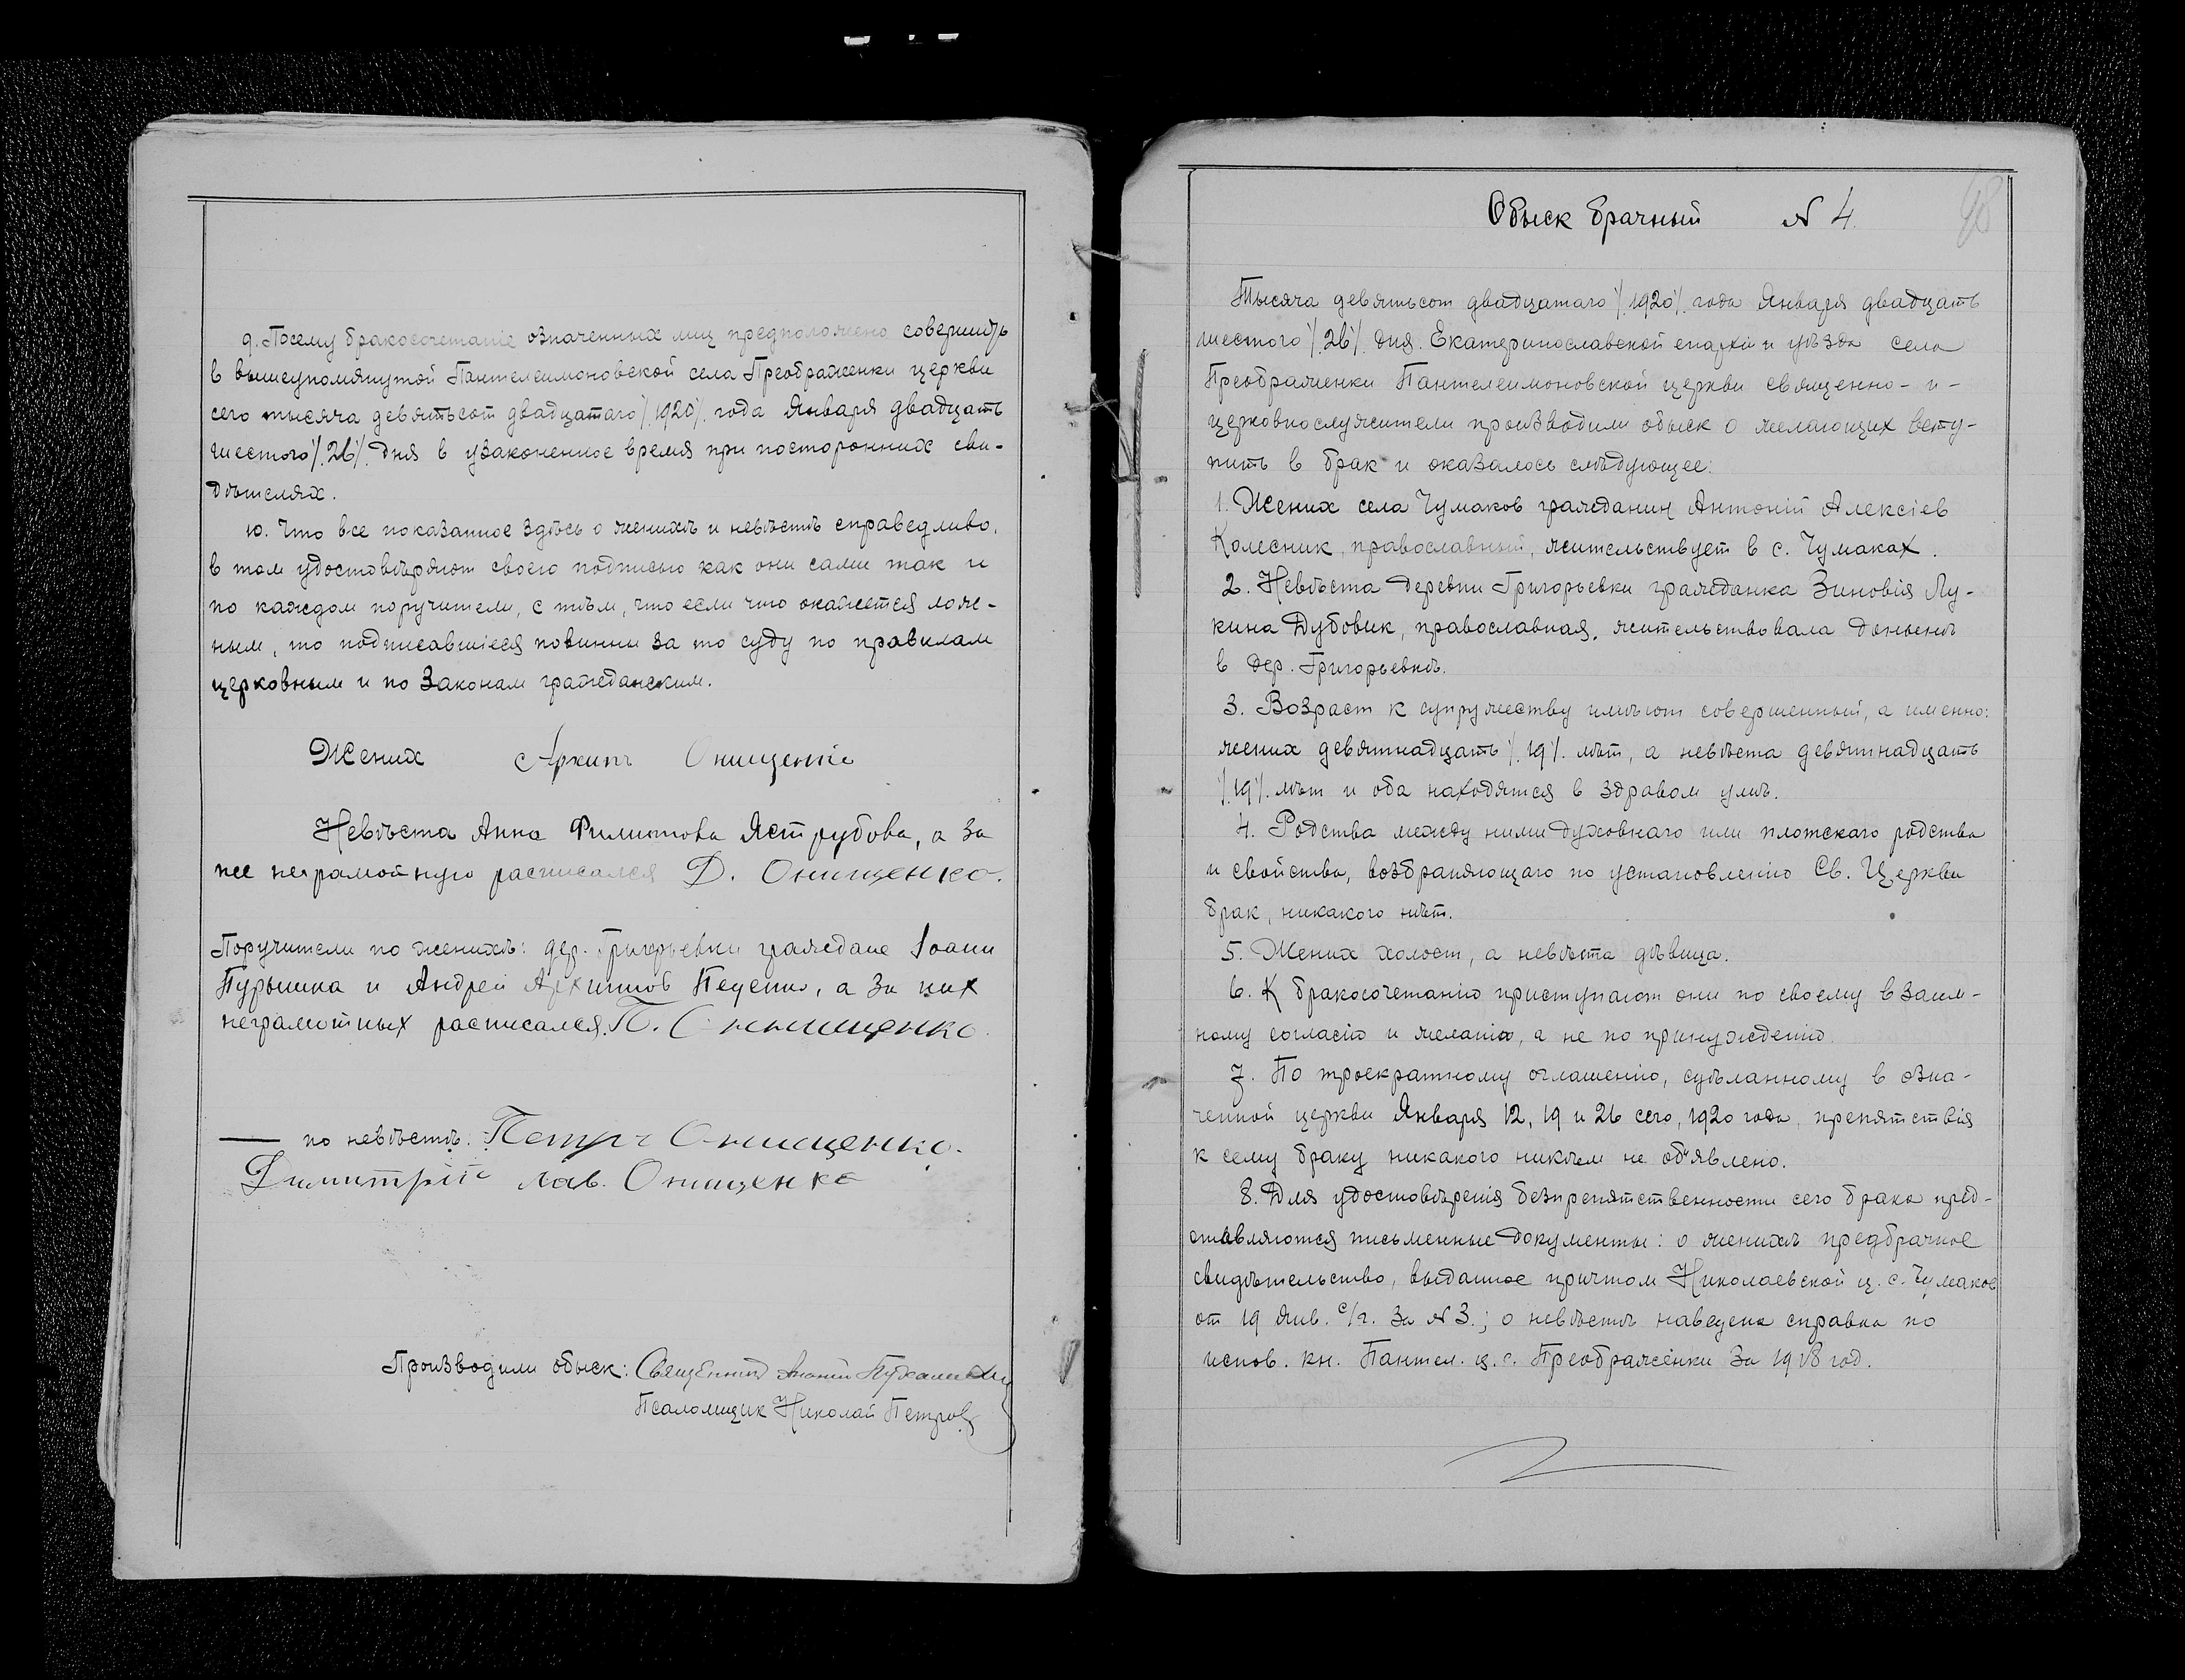 9. Посему бракосочетаніе означенных лиц предположено совершить
в вышеупомянутой Пантелеимоновской села Преображенки церкви
сего тысяча девятьсот двадцатаго /.1920/. года Января двадцать
шестого /.26/. дня в узаконенное время при посторонних сви-
дѣтелях.
10. Что все показанное здѣсь о женихѣ и невѣстѣ справедливо,
в том удостовѣряют своею подписью как они сами так и
по каждом поручители, с тѣм, что если что окажется лож-
ным, то подписавшіеся повинны за то суду по правилам
церковным и по законам гражданским.
Жених Архипъ Онищенко
Невѣста Анна Филиппова Яструбова, а за
нее неграмотную расписался Д. Онищенко.
Поручители по женихѣ: дер. Григорьевки граждане Іоанн
Пурышка и Андрей Архиппов Пеценко, а за них
неграмотных расписался П. Онищенко.
— по невѣстѣ: Петръ Онищенко.
Димитрій Онищенко
Производили обыск: Священник
Псаломщик Николай Петров
Обыск брачный N 4.
98
Тысяча девятьсот двадцатаго /.1920/. года Января двадцать
шестого /.26/. дня. Екатеринославской епархіи и уѣзда села
Преображенки Пантелеимоновской церкви священно-и-
церковнослужители производили обыск о желающих всту-
пить в брак и оказалось слѣдующее:
1. Жених села Чумаков гражданин Антоній Алексіев
Колесник, православный, жительствует в с. Чумаках.
2. Невѣста деревни Григорьевки гражданка Зиновія Лу-
кина Дубовик, православная, жительствовала донынѣ
в дер. Григорьевкѣ.
3. Возраст к супружеству имѣют совершенный, а именно:
жених девятнадцать /.19/. лѣт, а невѣста девятнадцать
/.19/. лѣт и оба находятся в здравом умѣ.
4. Родства между ними духовнаго или плотскаго родства
и свойства, возбраняющаго по установленію Св. Церкви
брак, никакого нѣт.
5. Жених холост, а невѣста дѣвица.
6. К бракосочетанію приступают они по своему взаим-
ному согласію и желанію, а не по принужденію.
7. По троекратному оглашенію, сдѣланному в озна-
ченной церкви Января 12, 19 и 26 сего, 1920 года, препятствія
к сему браку никакого никѣм не об'явлено.
8. Для удостовѣренія безпрепятственности сего брака пред-
ставляются письменные документы: о женихѣ предбрачное
свидѣтельство, выданное причтом Николаевской ц. с. Чумаков
от 19 янв. с/г. за N 3.; о невѣстѣ наведена справка по
испов. кн. Пантел. ц. с. Преображенки за 1918 год.